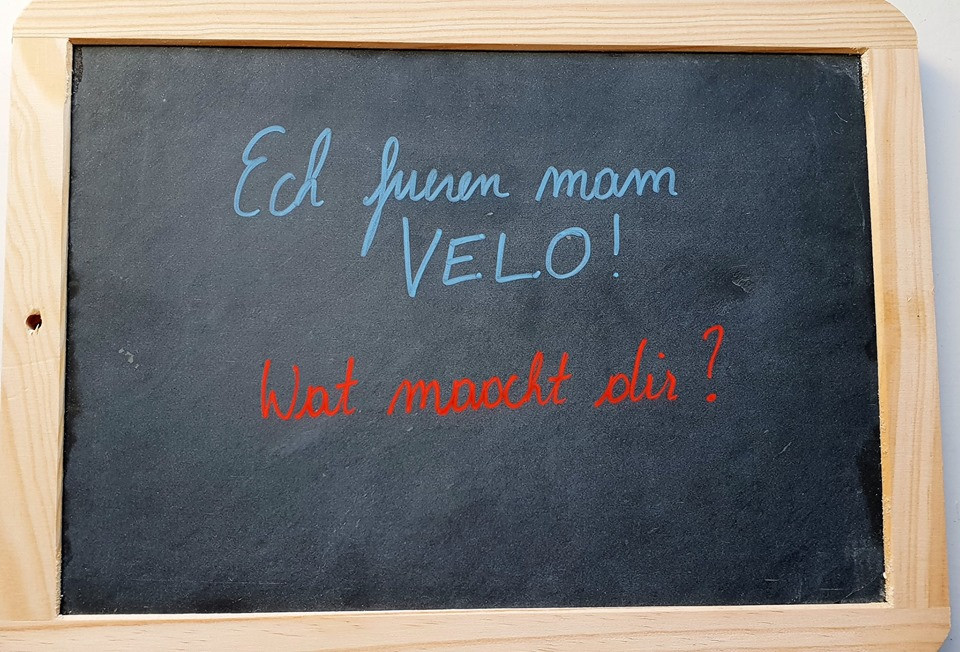 Ech fueren mam
VELO!
Wat maacht dir?